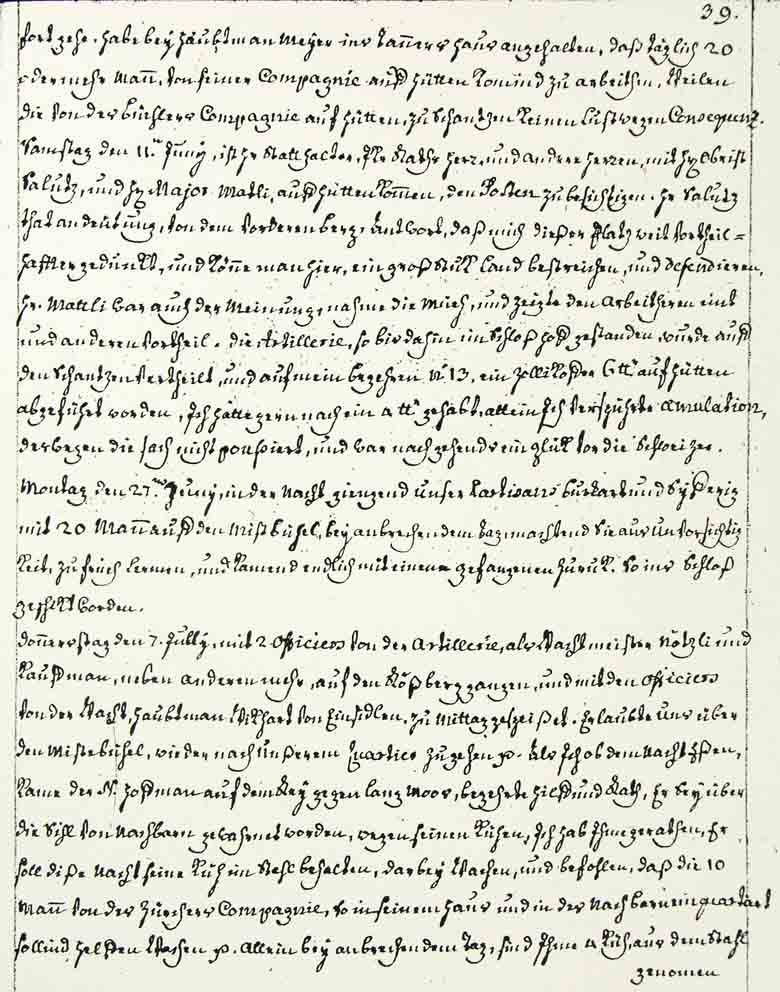 39.
fort gehe. habe bey haubtman Meÿer ins Tan̄ers haus angehalten, daß täglich 20
oder mehr Man̄, von seiner Compagnie auff hütten komind zu arbeithen, Weilen
die von der büchlers Compagnie auf hütten, zu schantzen keinen lust wegen Consequenz.
Samstag den 11.ten Junÿ, ist hr Statthalter, Jkr Rathshr herz, und andere herren, mit hr Obrist
Salutz, und hr Major Mattli, auff hütten kom̄en, den Posten zu besichtigen. hr Salutz
that andeütung, von dem vorderen berg, Antwort, daß mich dießer Platz weit vortheil=
haffter gedunkt, und kön̄e man hier, ein groß stuk land bestreichen, und defendieren,
hr. Mattli war auch der Meinung, nahme die müeh, und zeigte den Arbeitheren eint
und anderen vortheil. die Artillerie, so bis dahin im Schloß hoff gestanden, wurde auff
den Schantzen vertheilt, und auf mein begehren N.13, ein zollikoffer 6 ℔ auf hütten
abgeführt worden, Ich hätte gern nach ein 4 ℔ gehabt, allein Ich verspührte Æmulation,
deswegen die sach nicht poussiert, und war nachgehends ein glük vor die Schweizer.
Montag den 27.ten Junÿ, in der Nacht giengend unser Partisans burkart und
mit 20 Man̄ auff den Mistbühel, bey anbrechendem tag, machtend Sie aus unvorsichtig
keit, zu früeh lermen, und kamend endlich mit einem gefangenen zuruk. So ins Schloß
geschikt worden.
Don̄erstag den 7. Jullÿ, mit 2 Officiers von der Artillerie, als Wachtmeister Nötzli und
Kauffman, neben anderen mehr, auf den Roßberg gangen, und mit den Officiers
von der Wacht, haubtman Wikhart von Einsidlen, zu Mittag gespeißet. Erlaubte uns über
den Mistebühel, wieder nach unßerem Quartier zu gehen p. Als Ich ob dem Nacht Eßen,
kame der N. Hoffman auf dem Reÿ gegen lang moos, begehrte hilff und Rath, Er seÿ über
die Sihl von Nachbarn gewahrnet worden, wegen seinen kühen, Ich hab Ihme gerathen, Er
soll diße Nacht seine Küh im Stahl behalten, darbey Wachen, und befohlen, daß die 10
Man̄ von der Zürchers Compagnie, so in seinem haus und in der Nachberen einquartiert
sollind helffen Wachen p. Allein bey anbrechendem Tag, sind Ihme 4 Küh, aus dem Stahl
genomen